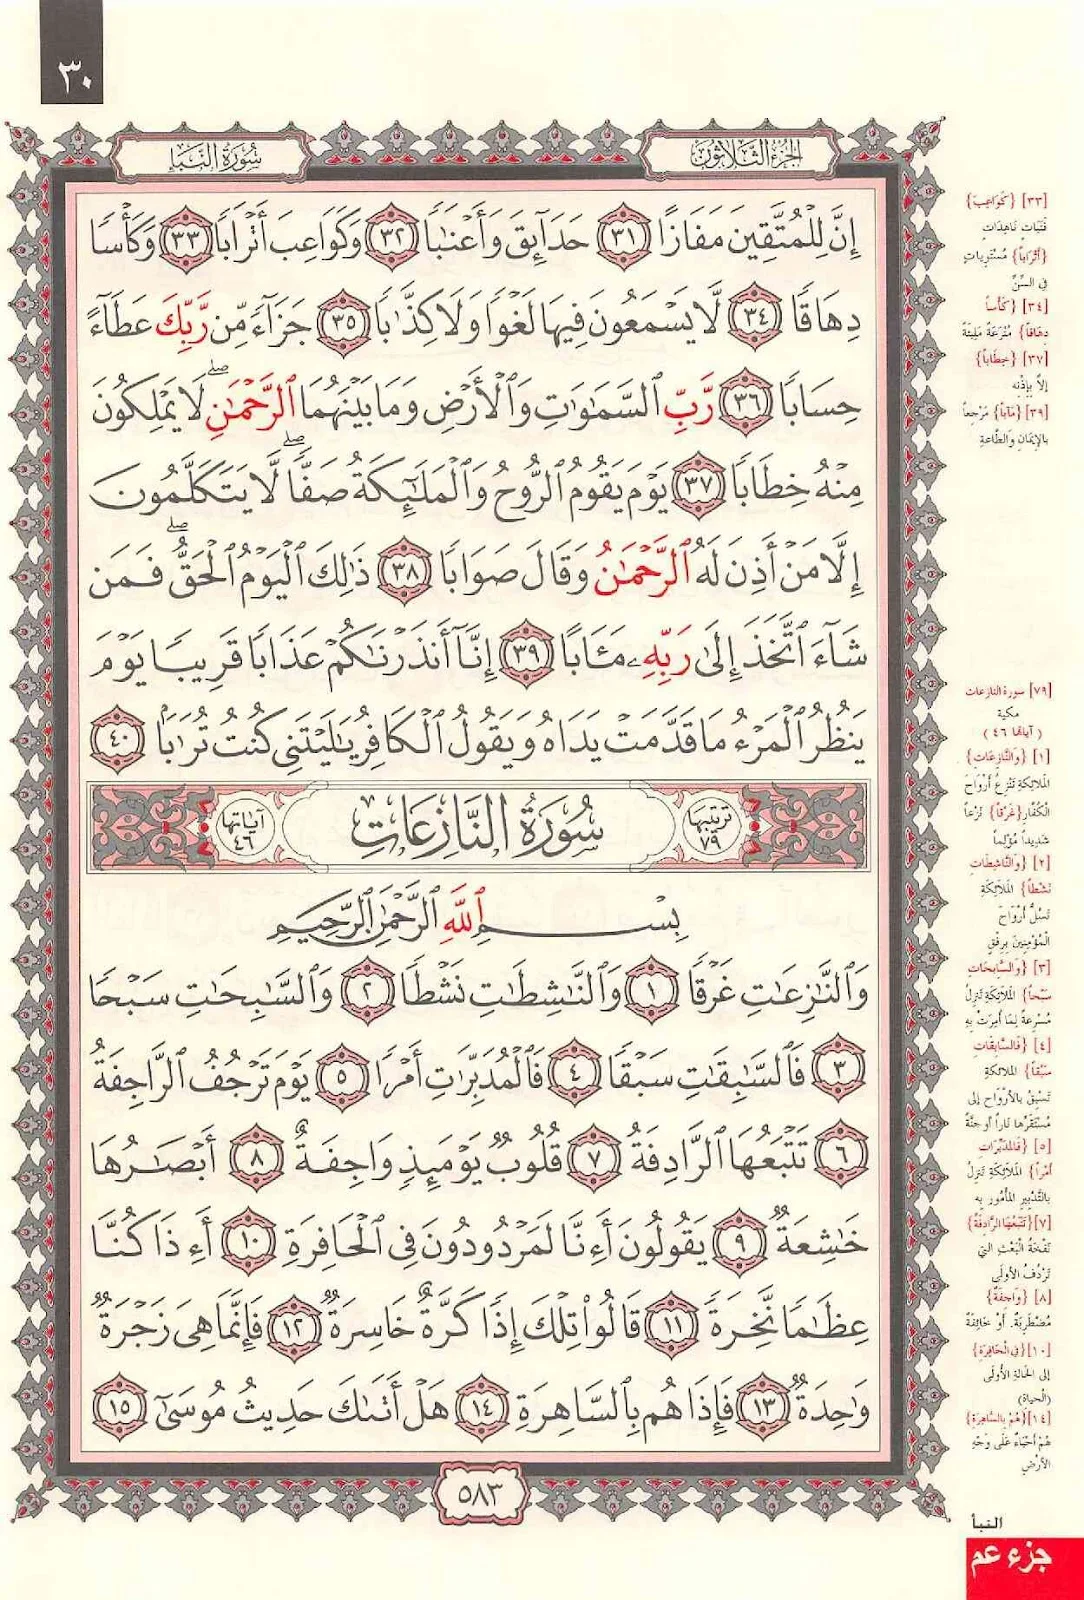 ٣٠
الجزء الثلاثون
سورة النبأ
إِنَّ لِلْمُتَّقِينَ مَفَازًا ٣١ حَدَآئِقَ وَأَعْنَٰبًا ٣٢ وَكَوَاعِبَ أَتْرَابًا ٣٣ وَكَأْسًا
دِهَاقًا ٣٤ لَّا يَسْمَعُونَ فِيهَا لَغْوًا وَلَا كِذَّٰبًا ٣٥ جَزَآءً مِّن رَّبِّكَ عَطَآءً
حِسَابًا ٣٦ رَّبِّ ٱلسَّمَٰوَٰتِ وَٱلْأَرْضِ وَمَا بَيْنَهُمَا ٱلرَّحْمَٰنِ ۖ لَا يَمْلِكُونَ
مِنْهُ خِطَابًا ٣٧ يَوْمَ يَقُومُ ٱلرُّوحُ وَٱلْمَلَٰٓئِكَةُ صَفًّا ۖ لَّا يَتَكَلَّمُونَ
إِلَّا مَنْ أَذِنَ لَهُ ٱلرَّحْمَٰنُ وَقَالَ صَوَابًا ٣٨ ذَٰلِكَ ٱلْيَوْمُ ٱلْحَقُّ ۖ فَمَن
شَآءَ ٱتَّخَذَ إِلَىٰ رَبِّهِۦ مَـَٔابًا ٣٩ إِنَّآ أَنذَرْنَٰكُمْ عَذَابًا قَرِيبًا يَوْمَ
يَنظُرُ ٱلْمَرْءُ مَا قَدَّمَتْ يَدَاهُ وَيَقُولُ ٱلْكَافِرُ يَٰلَيْتَنِى كُنتُ تُرَٰبًۢا ٤٠
ترتيبها ٧٩ سُورَةُ النَّازِعَاتِ آياتها ٤٦
بِسْمِ ٱللَّهِ ٱلرَّحْمَٰنِ ٱلرَّحِيمِ
وَٱلنَّٰزِعَٰتِ غَرْقًا ١ وَٱلنَّٰشِطَٰتِ نَشْطًا ٢ وَٱلسَّٰبِحَٰتِ سَبْحًا
٣ فَٱلسَّٰبِقَٰتِ سَبْقًا ٤ فَٱلْمُدَبِّرَٰتِ أَمْرًا ٥ يَوْمَ تَرْجُفُ ٱلرَّاجِفَةُ
٦ تَتْبَعُهَا ٱلرَّادِفَةُ ٧ قُلُوبٌ يَوْمَئِذٍ وَاجِفَةٌ ٨ أَبْصَٰرُهَا
خَٰشِعَةٌ ٩ يَقُولُونَ أَءِنَّا لَمَرْدُودُونَ فِى ٱلْحَافِرَةِ ١٠ أَءِذَا كُنَّا
عِظَٰمًا نَّخِرَةً ١١ قَالُوا۟ تِلْكَ إِذًا كَرَّةٌ خَاسِرَةٌ ١٢ فَإِنَّمَا هِىَ زَجْرَةٌ
وَٰحِدَةٌ ١٣ فَإِذَا هُم بِٱلسَّاهِرَةِ ١٤ هَلْ أَتَىٰكَ حَدِيثُ مُوسَىٰٓ ١٥
٥٨٣
[٣٣] {كَوَاعِبَ}
فَتَيَاتٍ نَاهِدَاتٍ
{أَتْرَاباً} مُسْتَوِيَاتٍ
فِي السِّنِّ
[٣٤] {كَأْساً
دِهَاقاً} مُتْرَعَةً مَلِيئَةً
[٣٧] {خِطَاباً}
إِلاَّ بِإِذْنِهِ
[٣٩] {مَآباً} مَرْجِعاً
بِالإِيمَانِ وَالطَّاعَةِ
[٧٩] سورة النازعات
مكية
( آياتها ٤٦ )
[١] {وَالنَّازِعَاتِ}
المَلائِكَةِ تَنْزِعُ أَرْوَاحَ
الْكُفَّارِ {غَرْقاً} نَزْعاً
شَدِيداً مُؤْلِماً
[٢] {وَالنَّاشِطَاتِ
نَشْطاً} المَلائِكَةِ
تَسُلُّ أَرْوَاحَ
الْمُؤْمِنِينَ بِرِفْقٍ
[٣] {وَالسَّابِحَاتِ
سَبْحاً} المَلائِكَةِ تَنْزِلُ
مُسْرِعَةً لِمَا أُمِرَتْ بِهِ
[٤] {فَالسَّابِقَاتِ
سَبْقاً} الملائكةِ
تَسْبِقُ بِالأَرْوَاحِ إِلى
مُسْتَقَرِّهَا نَاراً أَوْ جَنَّةً
[٥] {فَالمُدَبِّرَاتِ
أَمْراً} المَلائِكَةِ تَنْزِلُ
بِالتَّدْبِيرِ المَأْمُورِ بِهِ
[٧] {تَتْبَعُهَا الرَّادِفَةُ}
نَفْخَةُ الْبَعْثِ الَّتِي
تَرْدُفُ الأُولَى
[٨] {وَاجِفَةٌ}
مُضْطَرِبَةٌ، أَوْ خَائِفَةٌ
[١٠] {فِي الْحَافِرَةِ}
إِلى الْحَالَةِ الأُولَى
(الحياة)
[١٤] {هُمْ بِالسَّاهِرَةِ}
هُمْ أَحْيَاءٌ عَلَى وَجْهِ
الأَرْضِ
النبأ
جزء عم